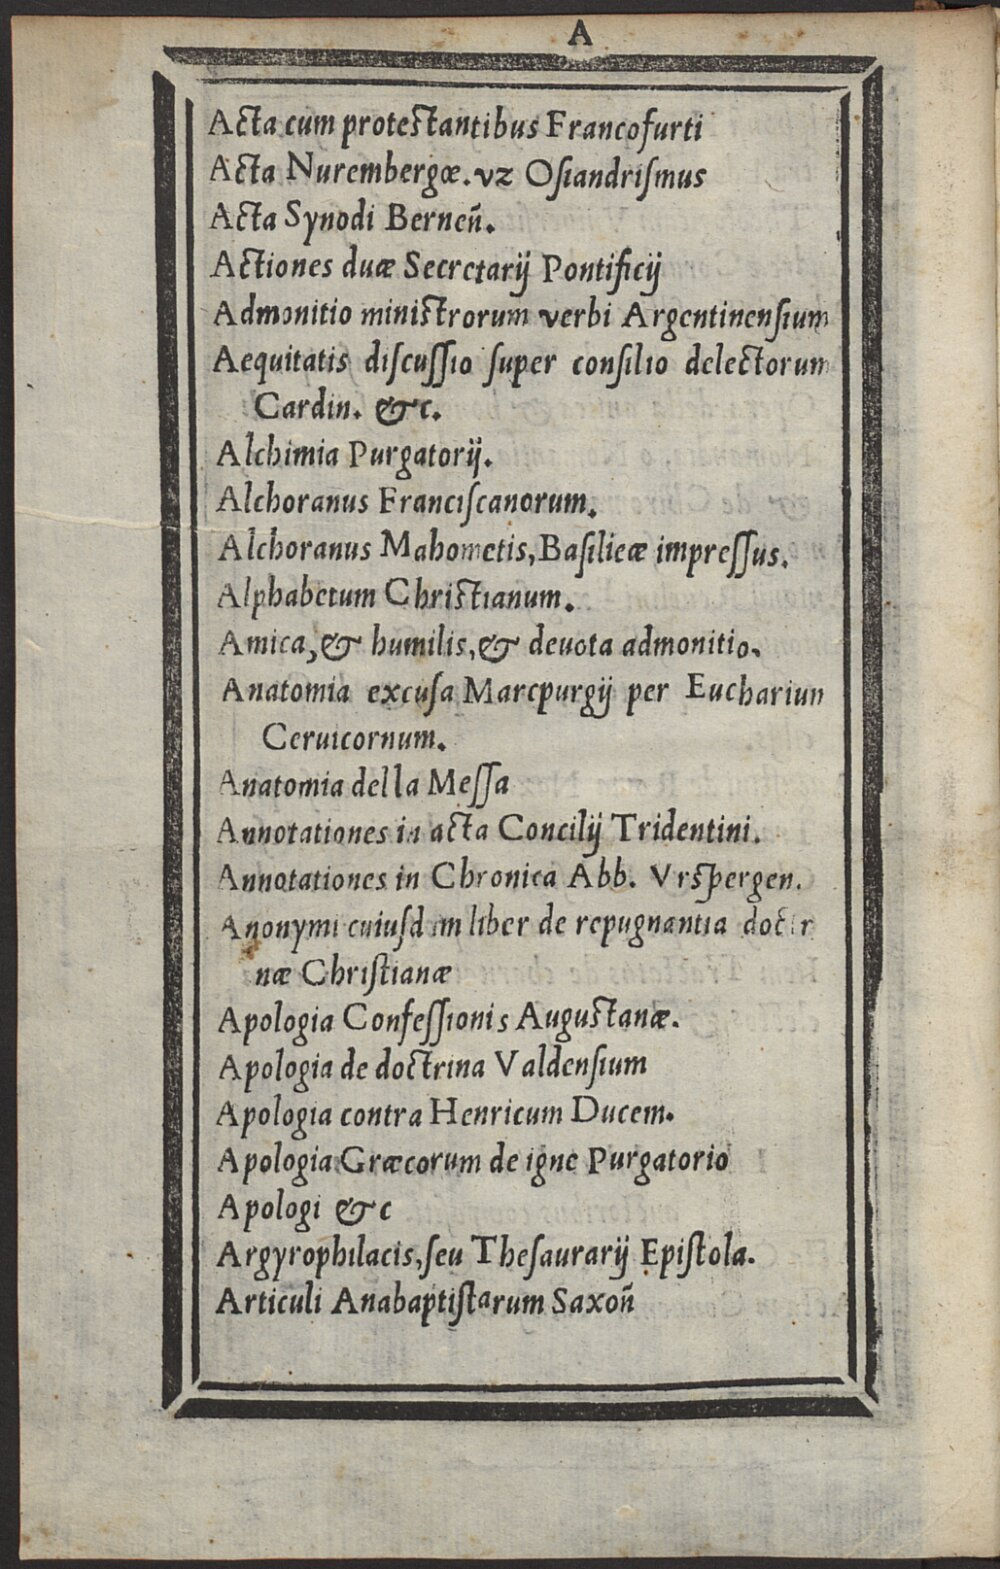 A
Acta cum protestantibus Francofurti
Acta Nurembergæ. vz Oſiandriſmus
Acta Synodi Berneñ.
Actiones duæ Secretarij Pontificij
Admonitio ministrorum verbi Argentinenſium
Aequitatis diſcuſſio ſuper conſilio delectorum
Cardin. &c.
Alchimia Purgatorij.
Alchoranus Franciſcanorum.
Alchoranus Mahometis, Baſilieæ impreſſus.
Alphabetum Christianum.
Amica, & humilis, & deuota admonitio.
Anatomia excuſa Marcpurgij per Eucharium
Ceruicornum.
Anatomia della Meſſa
Annotationes in acta Concilij Tridentini.
Annotationes in Chronica Abb. Vrspergen.
Anonymi cuiuſdam liber de repugnantia doctr
næ Chriſtianæ
Apologia Confeſſionis Augustanæ.
Apologia de doctrina Valdenſium
Apologia contra Henricum Ducem.
Apologia Græcorum de igne Purgatorio
Apologi &c
Argyrophilacis, ſeu Theſaurarij Epiſtola.
Articuli Anabaptiſtarum Saxoñ